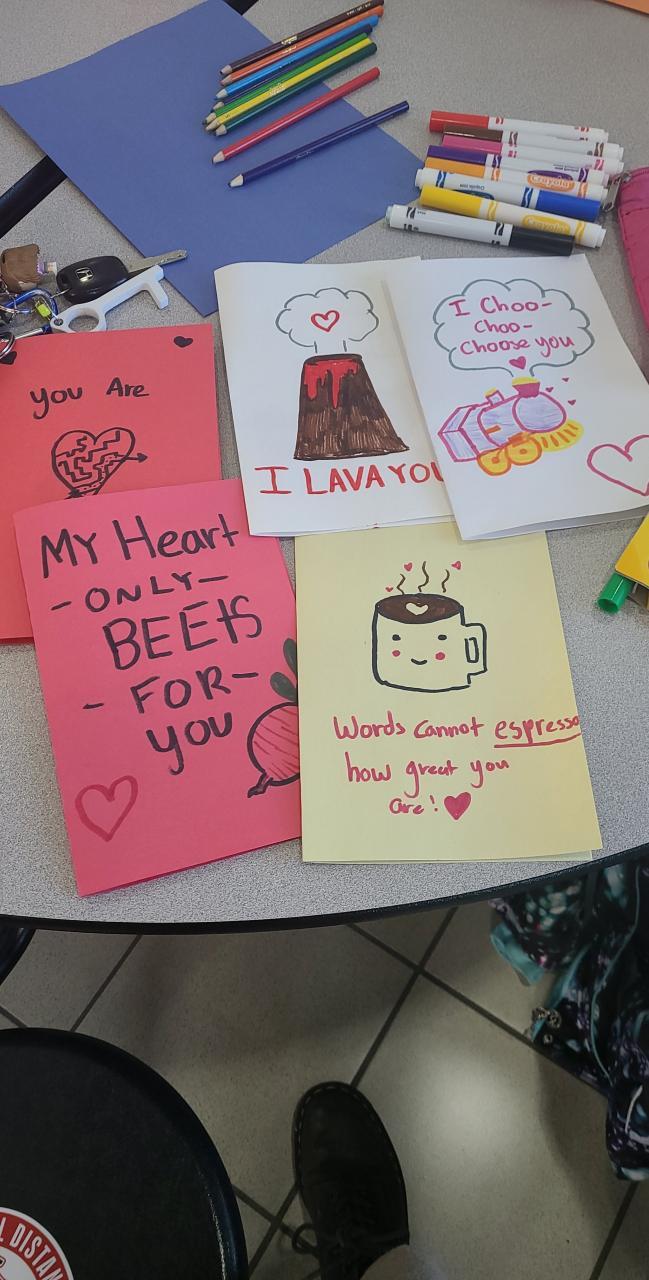 Crayola
Crayola
I Choo-
Choo-
Choose you
I LAVA YOU
you Are
MY Heart
- ONLY -
BEEtS
- FOR -
you
Words cannot espresso
how great you
are!
L DISTAN